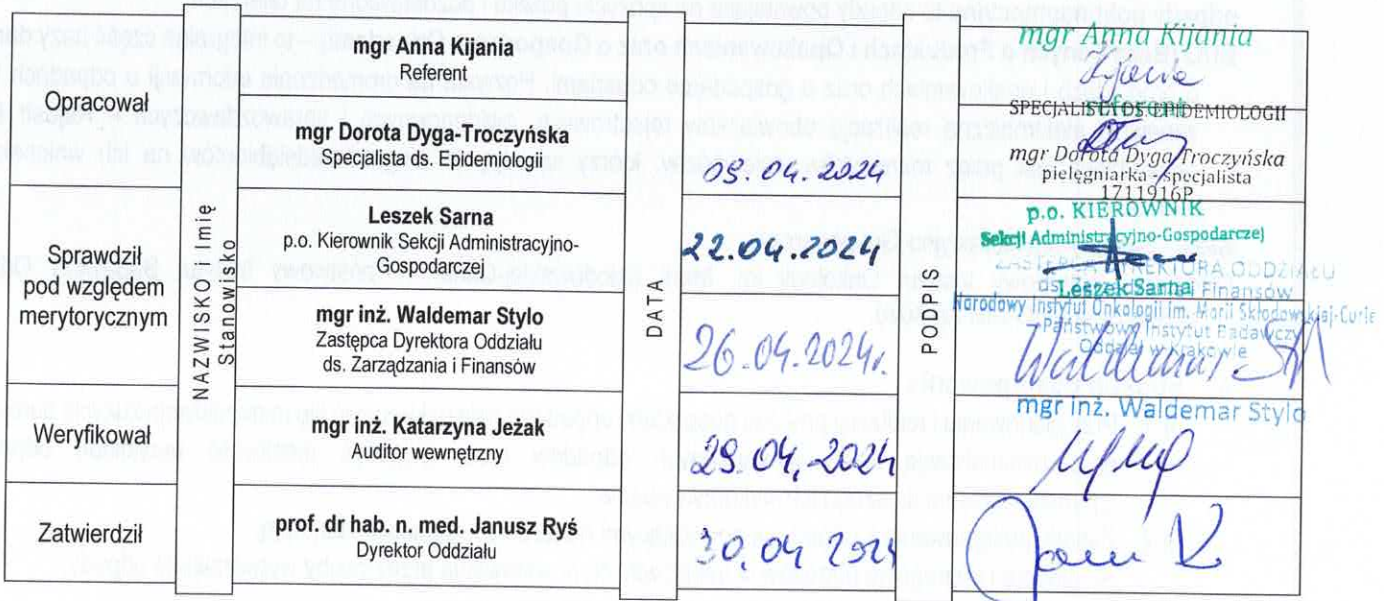 Opracował
NAZWISKO i Imię
Stanowisko
mgr Anna Kijania
Referent
mgr Dorota Dyga-Troczyńska
Specjalista ds. Epidemiologii
DATA
09.04.2024
PODPIS
mgr Anna Kijania
referent
SPECJALISTA DS. EPIDEMIOLOGII
mgr Dorota Dyga-Troczyńska
pielęgniarka specjalista
1711916P
Sprawdził
pod względem
merytorycznym
Leszek Sarna
p.o. Kierownik Sekcji Administracyjno-
Gospodarczej
22.04.2024
p.o. KIEROWNIK
Sekcji Administracyjno-Gospodarczej
Leszek Sarna
mgr inż. Waldemar Stylo
Zastępca Dyrektora Oddziału
ds. Zarządzania i Finansów
26.04.2024r.
ZASTĘPCA DYREKTORA ODDZIAŁU
ds. Zarządzania i Finansów
Narodowy Instytut Onkologii im. Marii Skłodowskiej-Curie
Państwowy Instytut Badawczy
Oddział w Krakowie
mgr inż. Waldemar Stylo
Weryfikował
mgr inż. Katarzyna Jeżak
Auditor wewnętrzny
29.04.2024
Zatwierdził
prof. dr hab. n. med. Janusz Ryś
Dyrektor Oddziału
30.04 2024